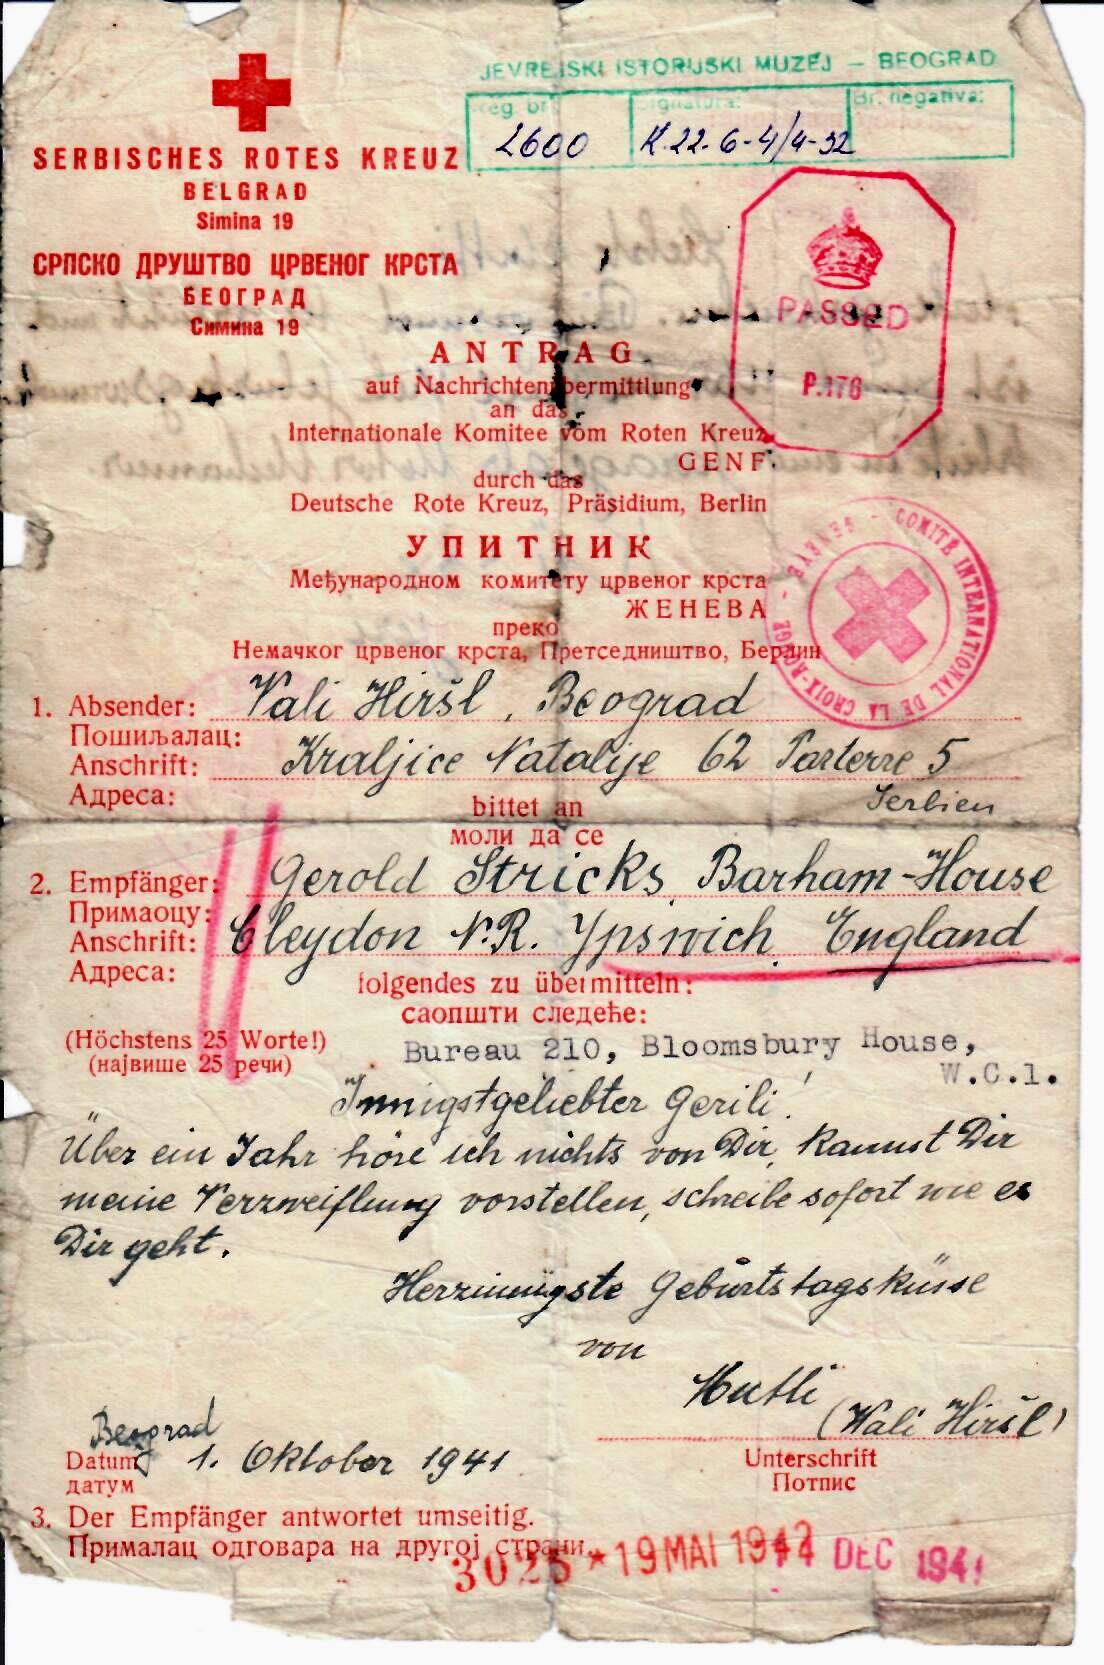 JEVREJSKI ISTORIJSKI MUZEJ — BEOGRAD
Reg. br. Signatura: Br. negativa:
2600 K.22-6-4/4-32
SERBISCHES ROTES KREUZ
BELGRAD
Simina 19
СРПСКО ДРУШТВО ЦРВЕНОГ КРСТА
БЕОГРАД
Симина 19
PASSED
P.176
ANTRAG
auf Nachrichtenübermittlung
an das
Internationale Komitee vom Roten Kreuz
GENF
durch das
Deutsche Rote Kreuz, Präsidium, Berlin
УПИТНИК
Међународном комитету црвеног крста
ЖЕНЕВА
преко
Немачког црвеног крста, Претседништво, Берлин
COMITÉ INTERNATIONAL DE LA CROIX-ROUGE - GENÈVE -
1. Absender: Vali Hiršl, Beograd
Пошиљалац:
Anschrift: Kraljice Natalije 62 Parterre 5
Адреса: Serbien
bittet an
моли да се
2. Empfänger: Gerold Stricks Barham-House
Примаоцу:
Anschrift: Cleydon N.R. Ypswich England
Адреса:
folgendes zu übermitteln:
саопшти следеће:
(Höchstens 25 Worte!)
(највише 25 речи)
Bureau 210, Bloomsbury House,
W.C.1.
Innigstgeliebter Gerili!
Über ein Jahr höre ich nichts von Dir, kannst Dir
meine Verzweiflung vorstellen, schreibe sofort wie es
Dir geht.
Herzinnigste Geburtstagsküsse
von
Mutti
(Wali Hiršl)
Beograd
Datum 1. Oktober 1941
датум
Unterschrift
Потпис
3. Der Empfänger antwortet umseitig.
Прималац одговара на другој страни.
3025 * 19 MAI 1942 DEC 1941